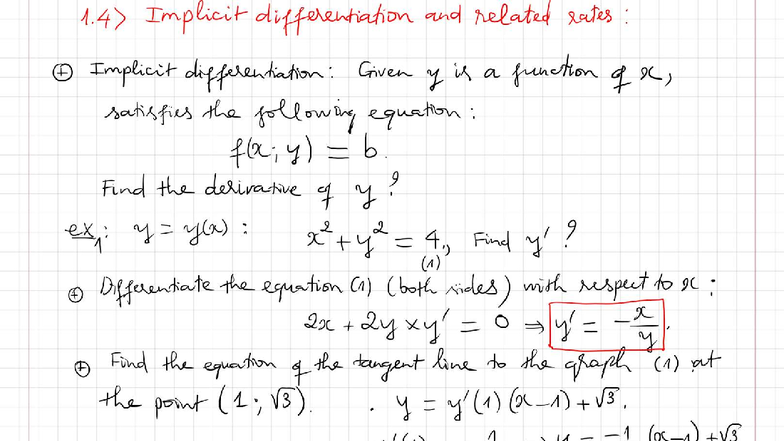 1.4> Implicit differentiation and related rates :
⊕ Implicit differentiation: Given y is a function of x,
satisfies the following equation :
f(x; y) = b.
Find the derivative of y ?
ex₁: y = y(x) : x² + y² = 4, (1) Find y' ?
⊕ Differentiate the equation (1) (both sides) with respect to x :
2x + 2y × y' = 0 ⇒ y' = -x/y.
⊕ Find the equation of the tangent line to the graph (1) at
the point (1 ; √3). . y = y'(1) (x-1) + √3.
(x-1) + √3